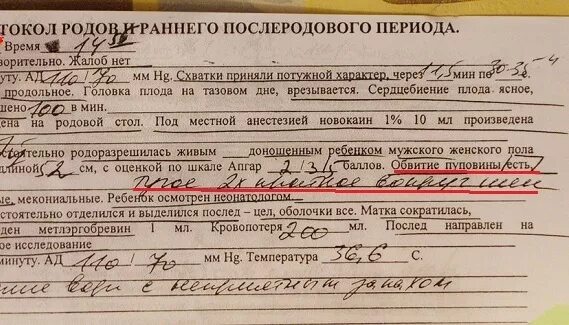 ТОКОЛ РОДОВ И РАННЕГО ПОСЛЕРОДОВОГО ПЕРИОДА.
Время 14 50
ворительно. Жалоб нет
нуту. АД 110/70 мм Hg. Схватки приняли потужной характер, через 1,5 мин по 30-35
продольное. Головка плода на тазовом дне, врезывается. Сердцебиение плода ясное,
шено 100 в мин.
дена на родовой стол. Под местной анестезией новокаин 1% 10 мл произведена
тоятельно родоразрешилась живым доношенным ребенком мужского женского пола
линой 52 см, с оценкой по шкале Апгар 2/3/5 баллов. Обвитие пуповины есть,
тугое 2х кратное вокруг шеи
ые, мекониальные. Ребенок осмотрен неонатологом.
стоятельно отделился и выделился послед – цел, оболочки все. Матка сократилась,
ден метлэргобревин 1 мл. Кровопотеря 200 мл. Послед направлен на
ое исследование
минуту. АД 110/70 мм Hg. Температура 36,6 С.
воды с неприятным запахом